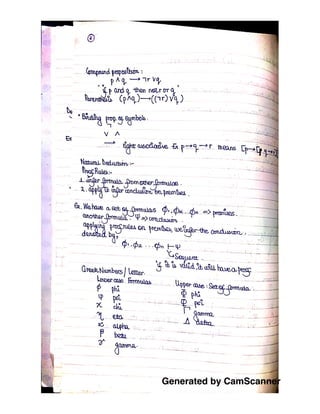 Compound proposition:
p ∧ q → ¬r ∨ q
"if p and q then not r or q"
Parenthesis (p∧q)→((¬r)∨q)
* Binding prop. of symbols.
¬
∨ ∧
Ex
→ right associative Ex p→q→r means [p→[q→r]]
Natural Deduction :-
Proof Rules:-
1. infer formula from other formulas.
2. apply to infer conclusion on premises.
Ex. We have a set of formulas ϕ1, ϕ2 ... ϕn => premises.
another formula Ψ => conclusion
applying proof rules on premises, we infer the conclusion.
denoted by,
ϕ1, ϕ2 ... ϕn ⊢ Ψ
if it is valid, it will have a proof
Greek Numbers / Letter
Lower case Formulas
Upper case: Set of formula.
φ phi
Φ phi
ψ psi
Ψ psi
χ chi
Γ gamma
η eta
Δ delta
α alpha
β beta
γ gamma
Generated by CamScanner